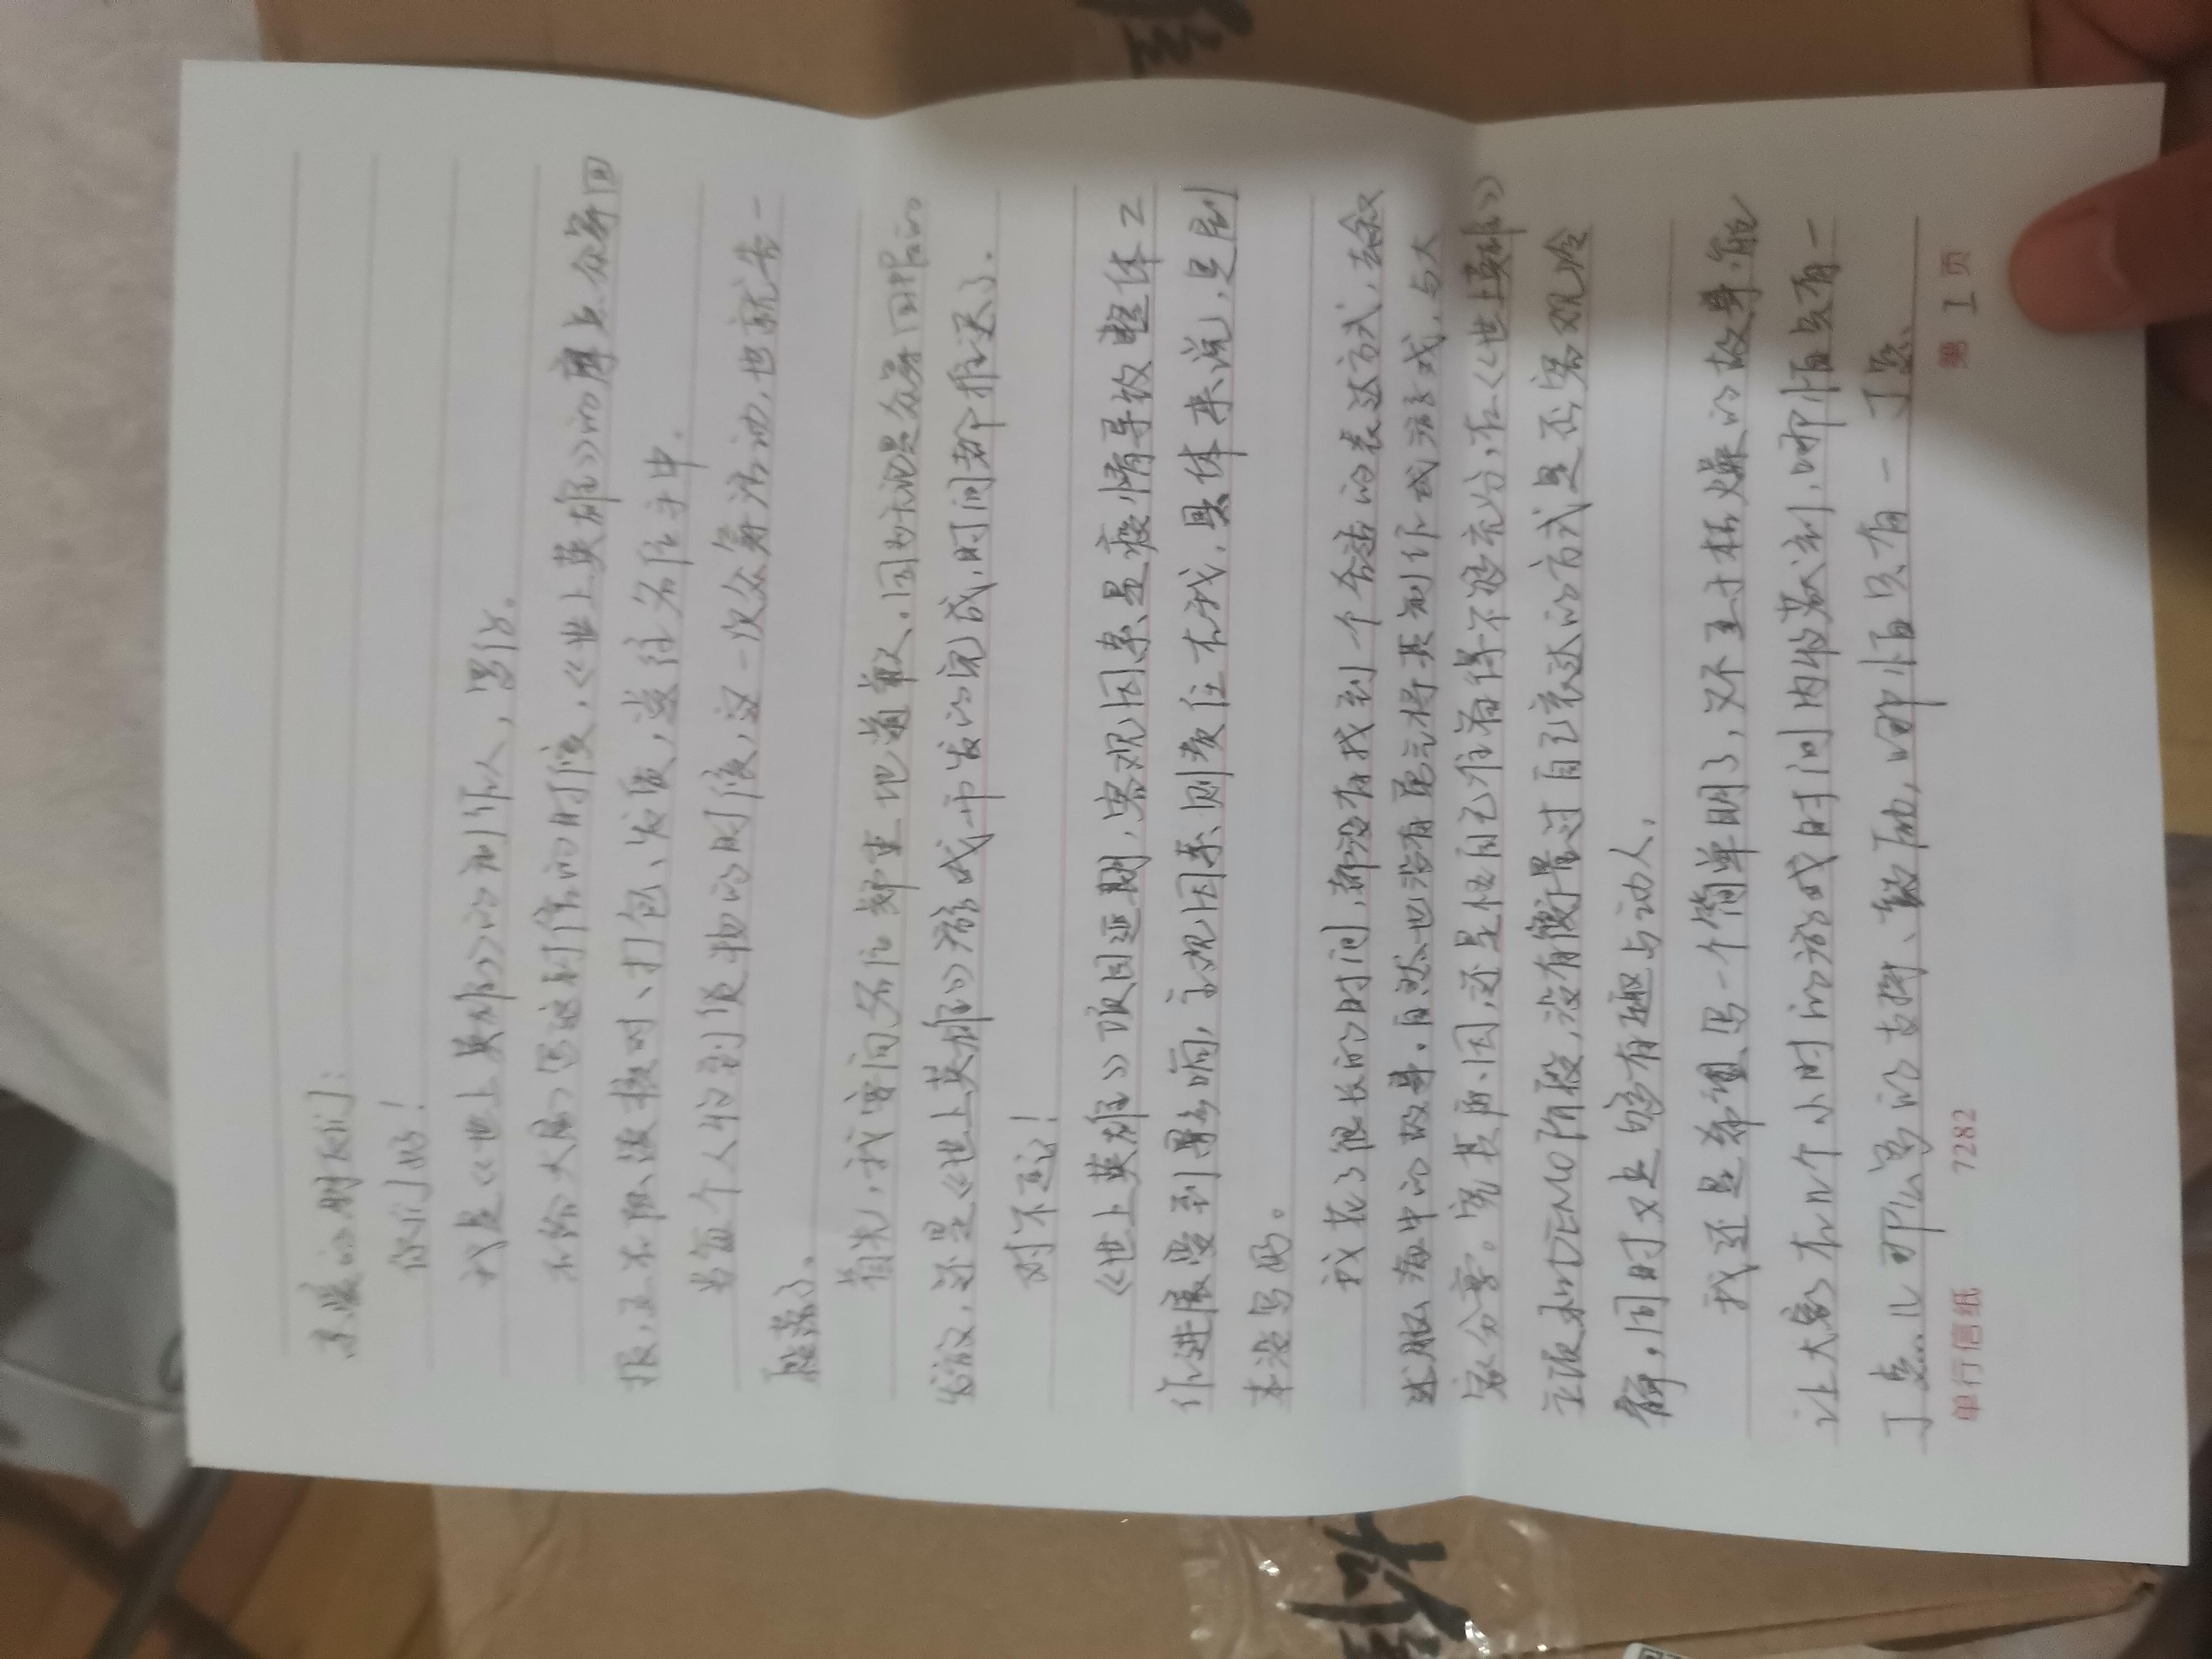 亲爱的朋友们：
你们好！
我是《世上英雄》的制作人，罗行。
在给大家写这封信的时候，《世上英雄》的摩点众筹回
报，正在陆续核对、打包、发货，送往各位手中。
当每个人收到实物的时候，这一次众筹活动，也就告一
段落了。
首先，我要向各位郑重地道歉。因为无论是众筹回报的
发放，还是《世上英雄》游戏中后的完成，时间都推迟了。
对不起！
《世上英雄》项目延期，客观因素是疫情导致整体工
作进展受到影响，主观因素则责任在我，具体来说，是剧
本没写好。
我花了很长的时间，都没有找到一个合适的表达方式，去叙
述脑海中的故事。自然也没有愿意将其制作成游戏，与大
家分享。究其原因，还是怪自己准备得不够充分，在《世上英雄》
立项和DEMO阶段，没有衡量过自己表达的方式是否客观冷
静，同时又足够有趣与动人。
我还是希望写一个简单明了，又不至于枯燥的故事，能
让大家在几个小时的游戏时间内收获到，哪怕只有一
丁点儿那么高的支撑、鼓励，哪怕只有一丁点。
单行信纸 7282 第 1 页